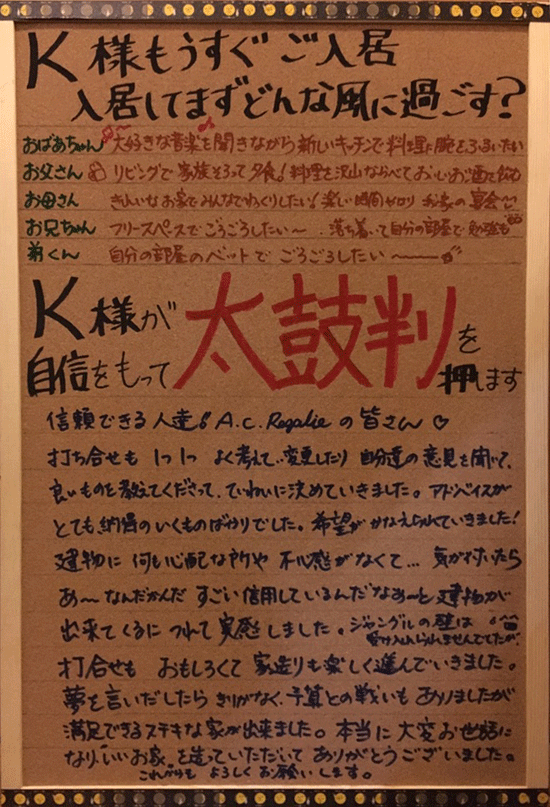 K様もうすぐご入居
入居してまずどんな風に過ごす?
おばあちゃん 大好きな音楽を聞きながら新しいキッチンで料理の腕をふるいたい
お父さん リビングで家族そろって夕食!料理を沢山ならべておいしいお酒を飲む
お母さん きれいなお家でみんなでゆっくりしたい!楽しい時間 宴会
お兄ちゃん フリースペースでごろごろしたい〜 落ち着いて自分の部屋で勉強も
弟くん 自分の部屋のベットでごろごろしたい〜
K様が
自信をもって太鼓判を押します
信頼できる人達!A.C.Regalieの皆さん♡
打ち合せも1つ1つよく考えて…変更したり自分達の意見を聞いて、
良いものを教えてくださって、ていねいに決めていきました。アドバイスが
とても納得のいくものばかりでした。希望がかなえられていきました!
建物に何も心配な所や不心感がなくて…気が付いたら
あ〜なんだかんだすごい信用しているんだなぁ〜と建物が
出来てくるにつれて実感しました。ジャングルの壁は
受け入れられませんでしたが
打合せもおもしろくて家造りも楽しく進んでいきました。
夢を言いだしたらきりがなく、予算との戦いもありましたが
満足できるステキな家が出来ました。本当に大変お世話に
なり、"いいお家"を造っていただいてありがとうございました。
これからもよろしくお願いします。